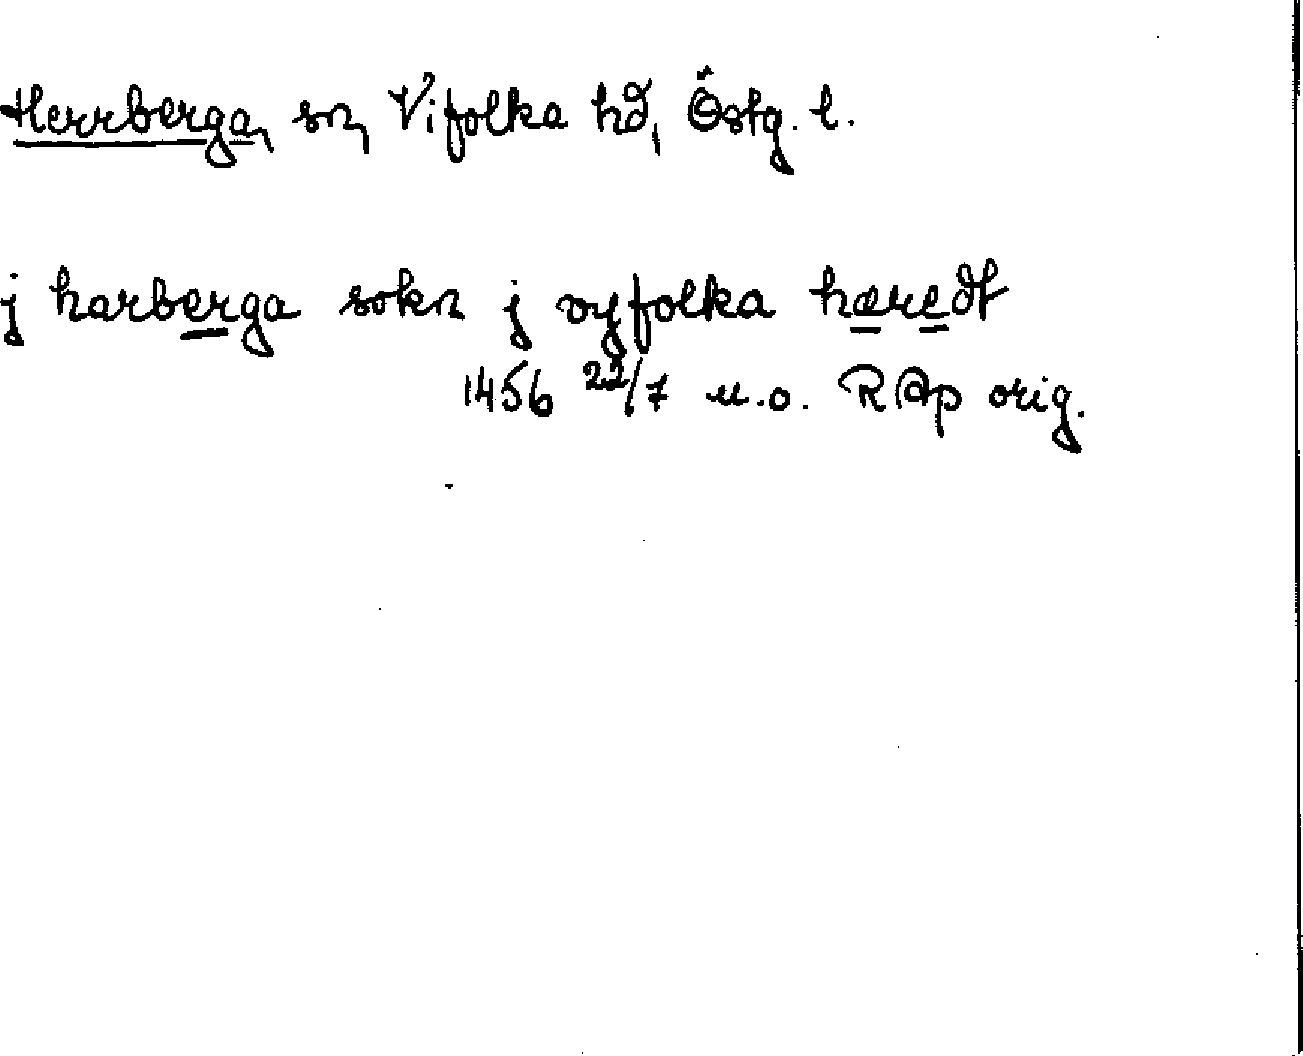 Herrberga, sn, Vifolka hd, Östg. l.
j harberga sokn j vyfolka hæredt
1456 22/7 u.o. RAp orig.